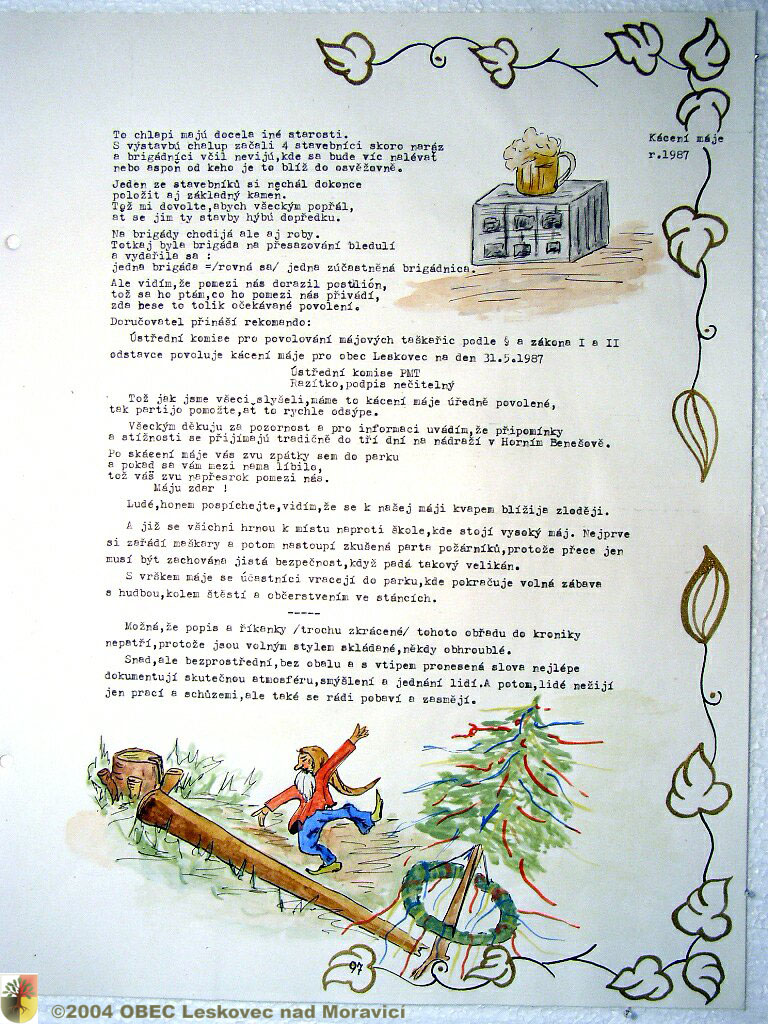 Kácení máje
r.1987
To chlapi majú docela iné starosti.
S výstavbú chalup začali 4 stavebníci skoro naráz
a brigádníci včil nevijú,kde sa bude víc nalévat
nebo aspoň od keho je to blíž do osvěžovně.
Jeden ze stavebníků si nechál dokonce
položit aj základný kameň.
Tož mi dovolte,abych všeckým popřál,
at se jim ty stavby hýbú dopředku.
Na brigády chodijá ale aj roby.
Totkaj byla brigáda na přesazování bledulí
a vydařila sa :
jedna brigáda =/rovná sa/ jedna zúčastněná brigádnica.
Ale vidím,že pomezi nás dorazil postilión,
tož sa ho ptám,co ho pomezi nás přivádí,
zda nese to tolik očekávané povolení.
Doručovatel přináší rekomando:
Ústřední komise pro povolování májových taškařic podle § a zákona I a II
odstavce povoluje kácení máje pro obec Leskovec na den 31.5.1987
Ústřední komise PMT
Razítko,podpis nečitelný
Tož jak jsme všeci slyšeli,máme to kácení máje úředně povolené,
tak partijo pomožte,at to rychle odsýpe.
Všeckým děkuju za pozornost a pro informaci uvádím,že připomínky
a stížnosti se přijímajú tradičně do tří dní na nádraží v Horním Benešově.
Po skácení máje vás zvu zpátky sem do parku
a pokad sa vám mezi nama líbilo,
tož váš zvu napřesrok pomezi nás.
Máju zdar !
Ludé,honem pospíchejte,vidím,že se k našej máji kvapem blížija zloději.
A již se všichni hrnou k místu naproti škole,kde stojí vysoký máj. Nejprve
si zařádí maškary a potom nastoupí zkušená parta požárníků,protože přece jen
musí být zachována jistá bezpečnost,když padá takový velikán.
S vrškem máje se účastníci vracejí do parku,kde pokračuje volná zábava
s hudbou,kolem štěstí a občerstvením ve stáncích.
-----
Možná,že popis a říkanky /trochu zkrácené/ tohoto obřadu do kroniky
nepatří,protože jsou volným stylem skládané,někdy obhroublé.
Snad,ale bezprostřední,bez obalu a s vtipem pronesená slova nejlépe
dokumentují skutečnou atmosféru,smýšlení a jednání lidí.A potom,lidé nežijí
jen prací a schůzemi,ale také se rádi pobaví a zasmějí.
97
©2004 OBEC Leskovec nad Moravicí